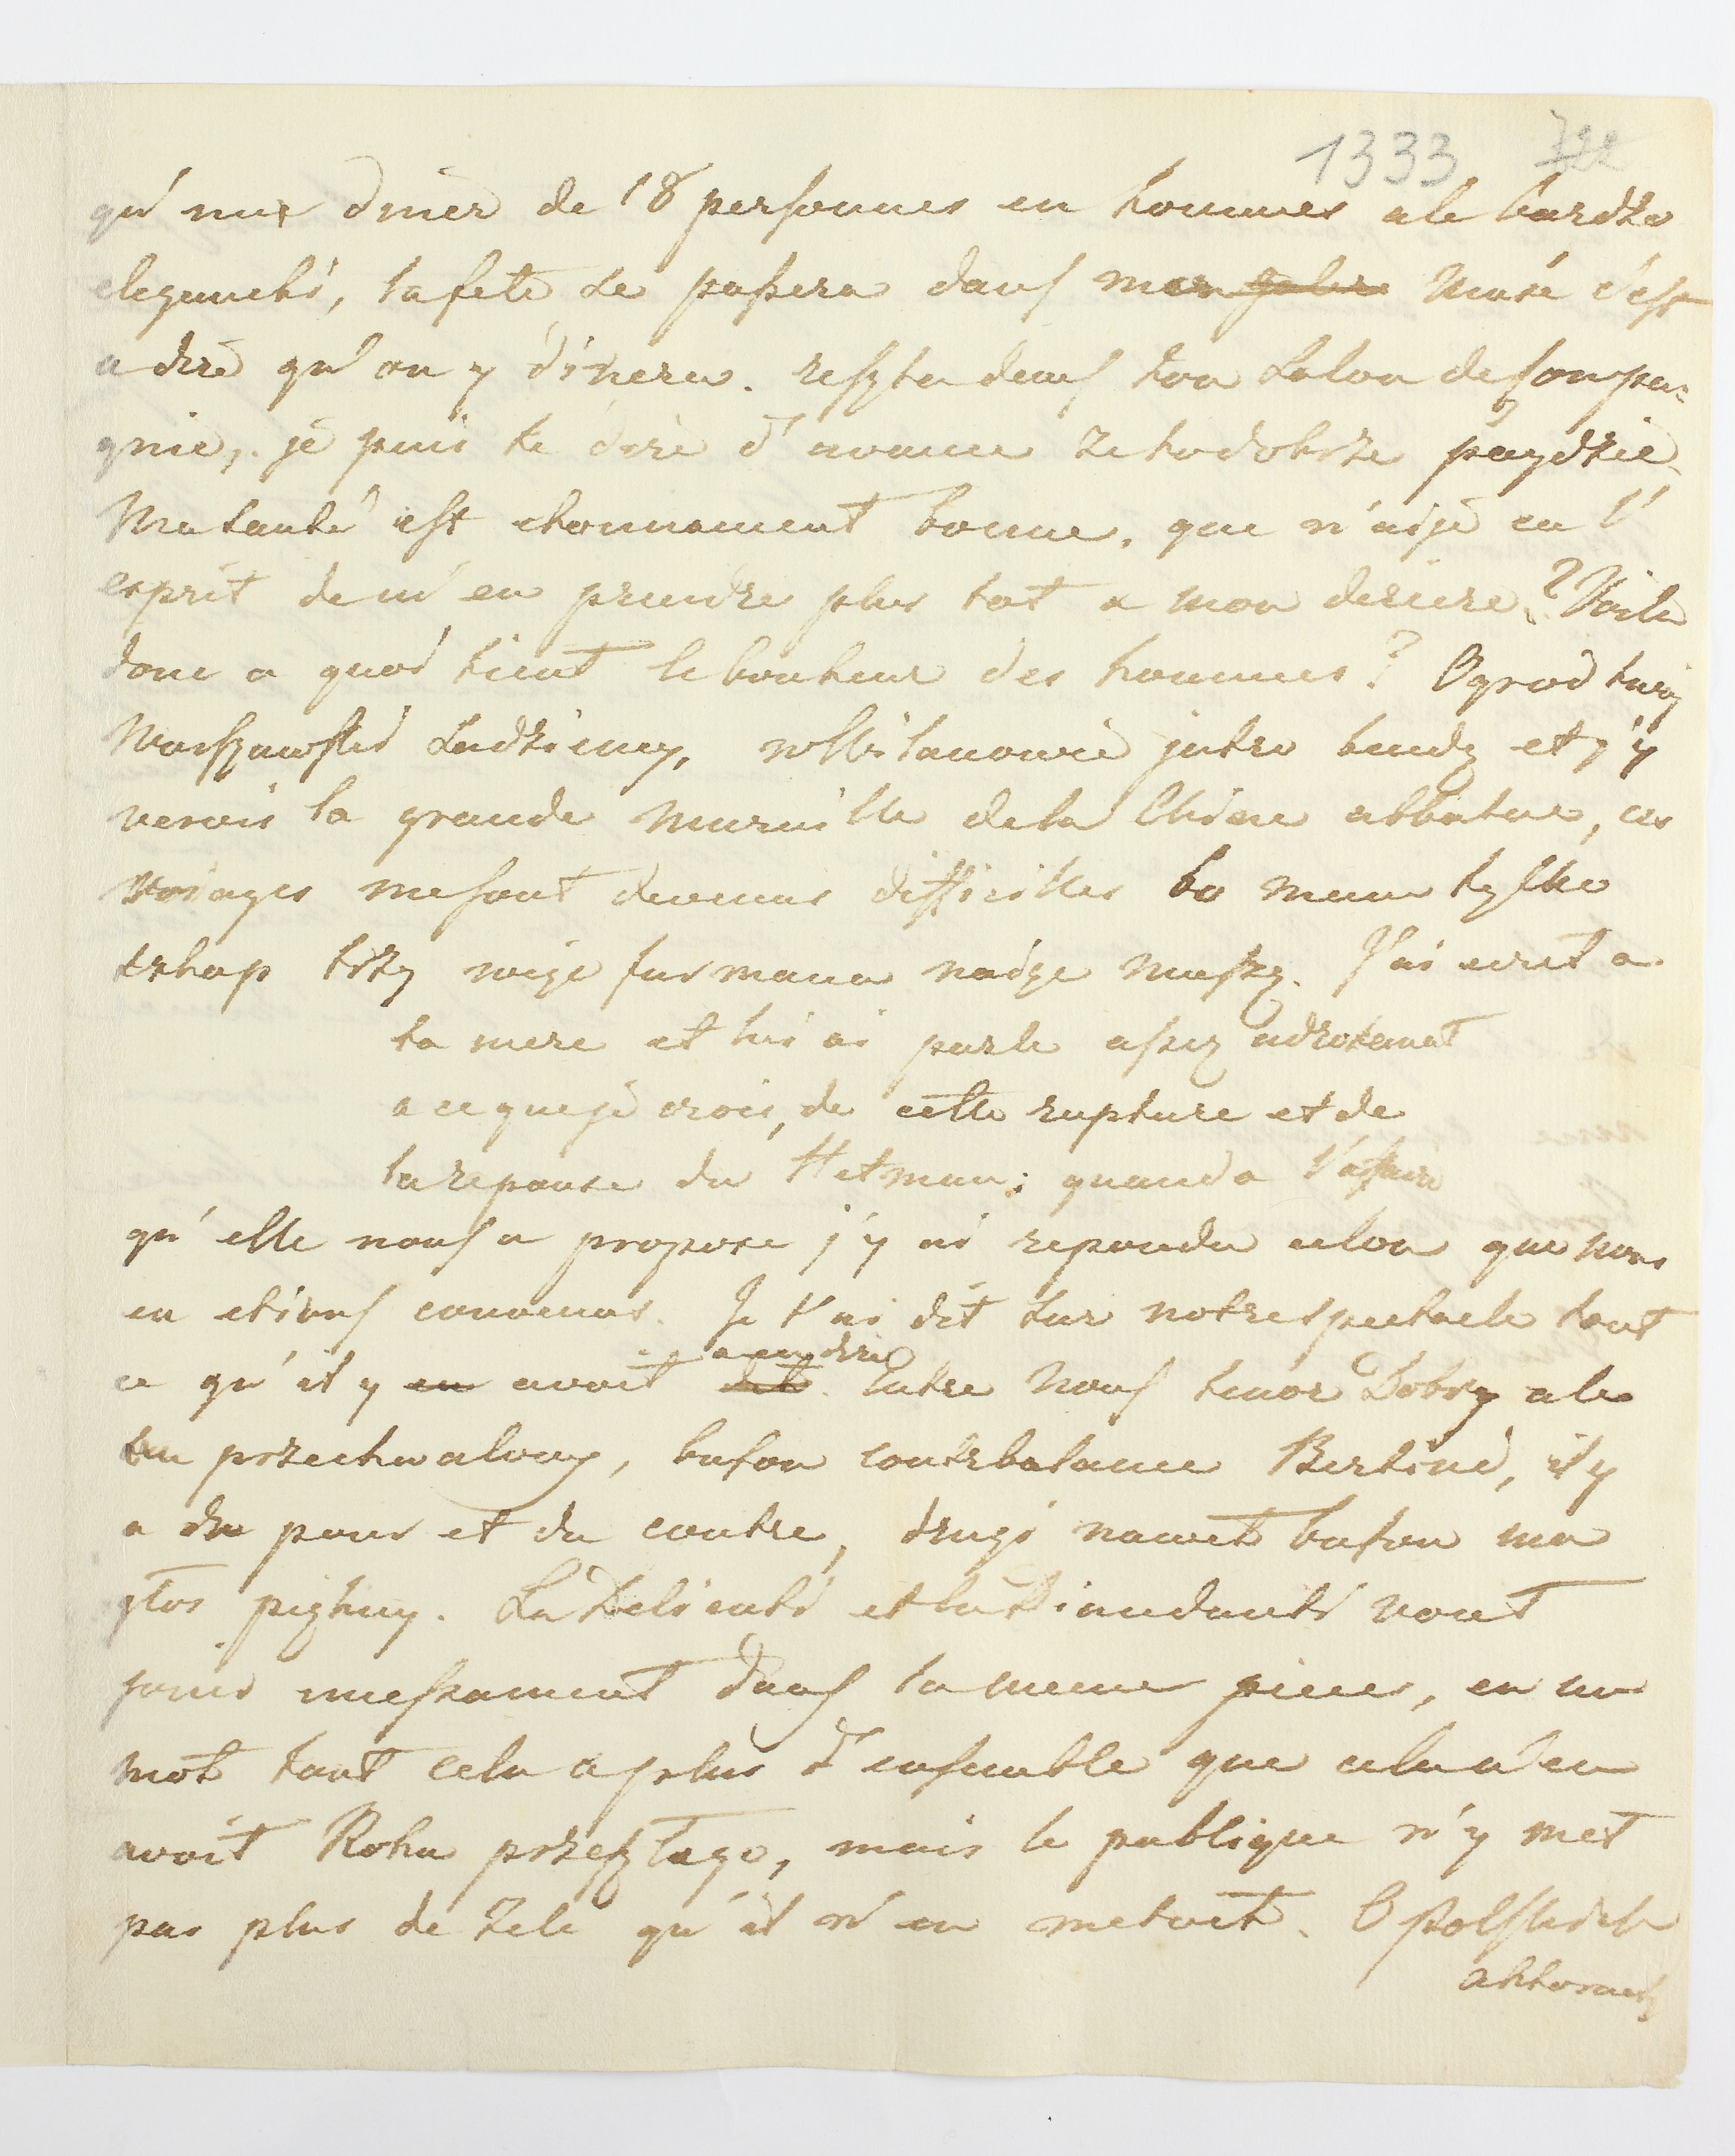 1333 722
qu'un diner de 18 personnes en hommes ale bardzo
elegancki, la fete se passera dans mon Musé c'est
a dire qu'on y dinera. reszta dans ton Salon de Compa=
gnie, je puis te dire d'avance ze to dobrze poydzie.
Ma tante est etonnament bonne, que n'aije eu l'
esprit de m'en prendre plus tot a mon deriere? Voila
donc a quoi tient le bonheur des hommes? Ogrod twoy
Warszawski Sadziemy, w Wilanowie jutro bendę et j'y
verais la grande muraille de la Chine abbatue, ces
voiages me sont devenus difficilles bo mam tylko
szkap trzy więc furmana naiąc muszę. J'ai ecrit a
ta mere et lui ai parlé assez adroitemat
a ce que je crois, de cette rupture et de
la reponse du Hetman; quand a l'affaire
qu'elle nous a propose j'y ai repondu celon que nous
en etions convenus. Je t'ai dit sur notre spectacle tout
ce qu'il y avoit a en dire. Entre nous tenor Dobry ale
przechwalony, bufon contrbalance Bertini, il y
a du pour et du contre, drugi nawet bufon ma
głos piękny. La Delicati et la Diamanti vont
jouer incessament dans la meme piece, en un
mot tout cela a plus d'ensemble que cela n'en
avoit Roku przeszłego, mais le publique n'y met
pas plus de Zele qu'il n'en metoit. O Polskich
aktorach